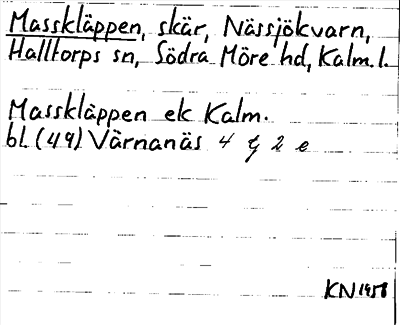 Masskläppen, skär, Nässjökvarn,
Halltorps sn, Södra Möre hd, Kalm. l.
Masskläppen ek Kalm.
bl. (49) Värnanäs 4 g 2 e
KN 1958